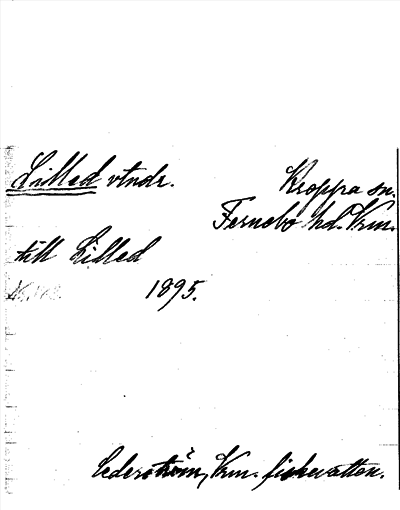 Lilled vtndr. Kroppa sn.
Fernebo hd. Vrm.
till Lilled
1895.
Cederström, Vrm. fiskevatten.